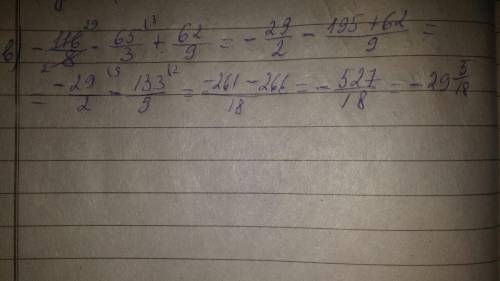 в) - 116²⁹/₂8 - 65/3⁽³ + 62/9 = - 29/2 - 195+62/9 =
= -29/2⁽⁹ - 133/9⁽² = -261-266/18 = - 527/18 = - 29 5/18